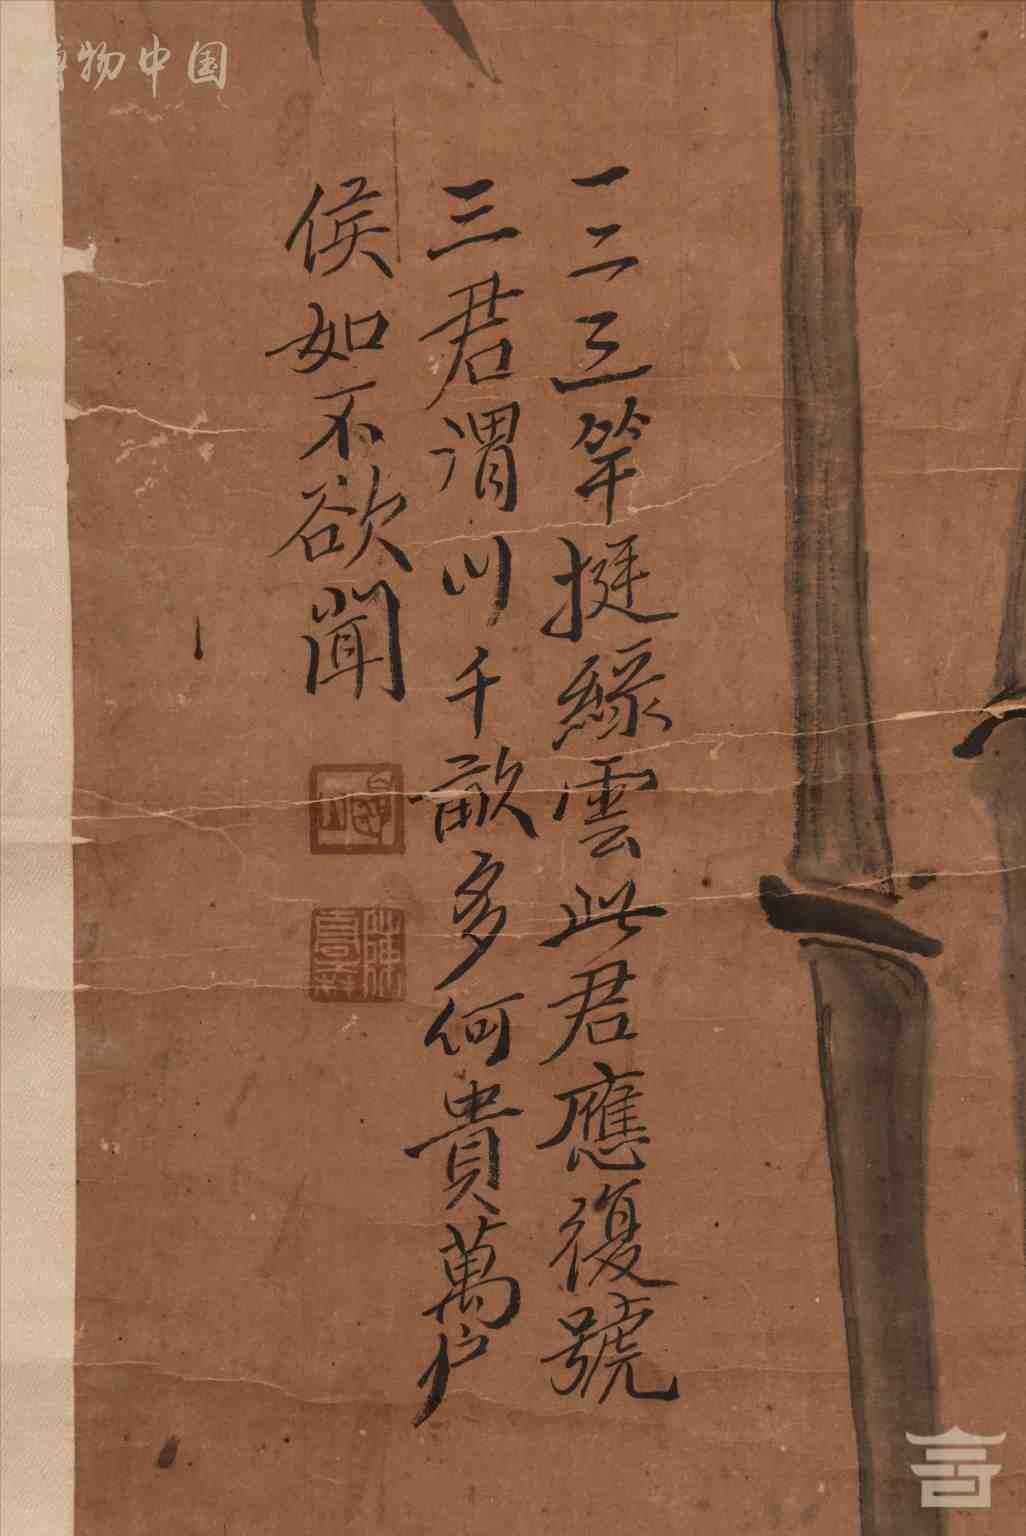 一二三竿挺綠雲此君應復號
三君渭川千畝多何貴萬戶
侯如不欲聞
博物中国